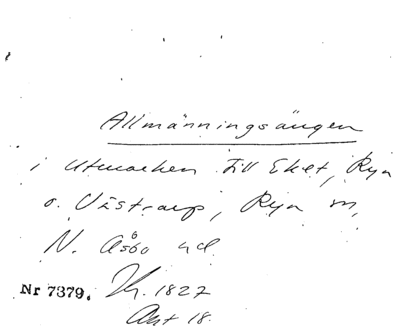 Allmänningsängen
i utmarken till Eket, Rya
o. Västrarp, Rya sn,
N. Åsbo hd
Nr 7379. Kr. 1827
Akt 18.